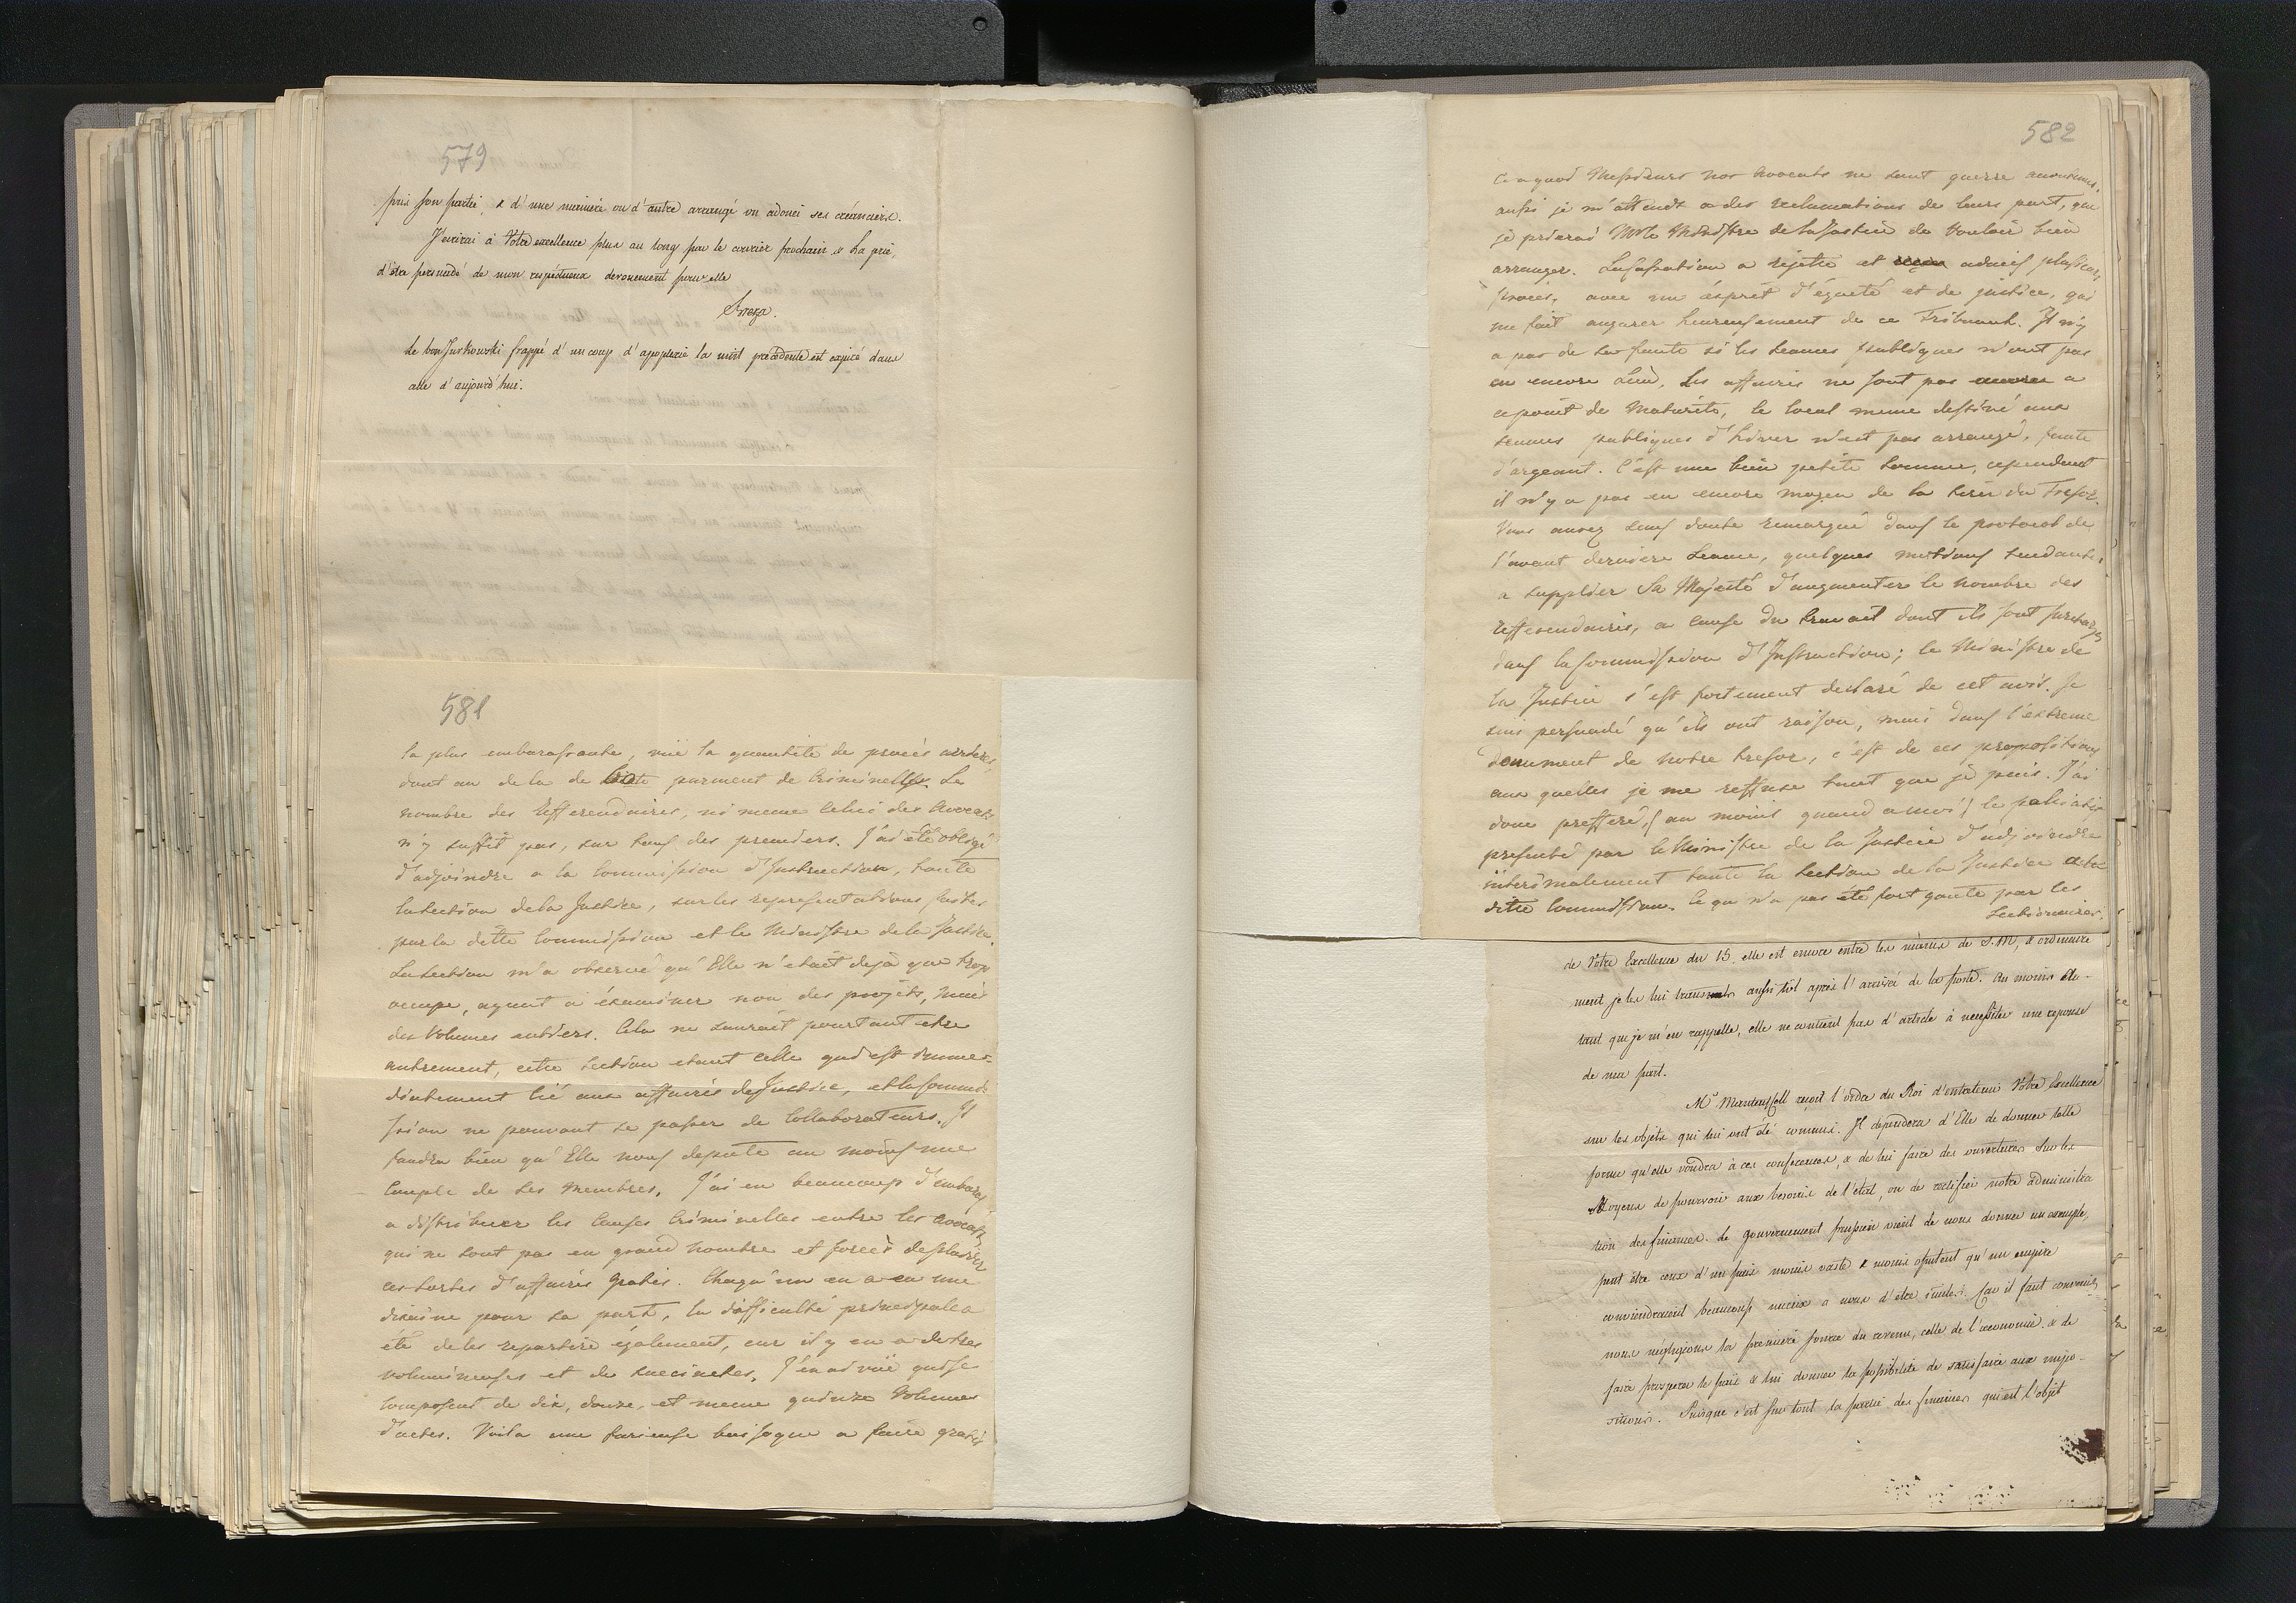 579
pris son partie, & d'une maniere ou d'autre arrangé ou adouci ses créanciers.
J'ecrirai à Votre excellence plus au long par le courier prochain & La prie,
d'être persuadé de mon respectueux devouement pour elle
Breza.
Le bon Juskowski frappé d'un coup d'apoplexie la nuit précédente est expiré dans
celle d'aujourd'hui.
581
la plus embarassante, vuë la quantité de procès arrierés
dont au dela de purment de Criminelles. Le
nombre des Refferendaires, ni meme celui des Avocats
n'y suffit pas, sur tous des premiers. J'ai été obligé
d'adjoindre a la Commission d'Instruction, toute
la Section de la Justice, sur les representations faites
par la ditte Commission et le Ministre de la Justice.
La Section m'a observé qu'Elle n'etoit dejà que trop
occupe, ayant a éxaminer non des projéts, mais
des Volumes entiers. Cela ne sauroit pourtant etre
autrement, cette Section etant celle qui est imme-
diatement lié aux affaires de Justice, et la Commis-
sion ne pouvant se passer de Collaborateurs. Il
faudra bien qu'Elle nous depute au moins une
Couple de ses Membres. J'ai eu beaucoup d'embaras
a distribuer les Causes Criminelles entre les Avocats
qui ne sont pas en grand nombre et forcés de plaider
ces sortes d'affaires gratis. Chaqu'un en a eu une
dixaine pour sa part, la difficulté principale a
été de les repartire également, car il y en a de tres
volumineuses et de succinctes. J'en ai vuë qui se
composent de dix, douze, et meme quinze Volumes
d'actes. Voila une furieuse besogne a faire gratis
582
Ce a quoi Messieurs nos Avocats ne sont guerre accoutumés.
aussi je m'attends a des reclamations de leurs part, que
je prierai Mr le Ministre de la Justice de vouloir bien
arranger. La Cassation a rejetté et admis plusieurs
procès, avec un ésprit d'équeté et de justice, qui
me fait augurer heureusement de ce Tribunal. Il n'y
a pas de sa faute si les seances publiques n'ont pas
eu encore lieu. Les affaires ne sont pas a
ce point de Maturité, le local meme destiné aux
seances publiques d'hiver n'est pas arrangé, faute
d'argeant. C'est une bien petite somme, cependent
il n'y a pas eu encore moyen de la tirer du Tresor.
Vous aurez sans doute remarqué dans le protocol de
l'avant derniere seance, quelques motions tendantes
a supplier Sa Majesté d'augmenter le nombre des
Refferendaires, a cause du travail dont ils sont surchargés
dans la Commission d'Instruction; le Ministre de
la Justice s'est fortement declaré de cet avis. Je
suis persuadé qu'ils ont raison, mais dans l'extreme
denument de notre tresor, c'est de ces propositions
aux quelles je me reffuse tant que je puis. J'ai
donc prefferé, (au moins quand a moi) le paliatif
presenté par le Ministre de la Justice d'adjoindre
interimalement toute la Section de la Justice a la
ditte Commission. Ce qui n'a pas été fort gouté par les
Sectionaires.
de Votre Excellence du 15. elle est encore entre les mains de S.M, & ordinaire
ment je les lui transmets aussi tôt après l'arrivée de la poste. Au moins au-
tant que je m'en rappelle, elle ne contient pas d'article à necessiter une reponse
de ma part.
Mr Manteuffell reçoit l'ordre du Roi d'entretenir Votre Excellence
sur les objets qui lui ont été commis. Il dépendra d'Elle de donner telle
forme qu'elle voudra à ces conferences, & de lui faire des ouvertures sur les
Moyens de pourvoir aux besoins de l'état, ou de rectifier notre administra
tion des finances. Le gouvernement prussien vient de nous donner un exemple,
peut être ceux d'un païs moins vaste & moins opulent qu'un empire
conviendroient beaucoup mieux a nous d'être suivis. Car il faut convenir,
nous négligeons la première source du revenu, celle de l'œconomie. & de
faire prosperer le païs & lui donner la possibilité de satisfaire aux impo-
sitions. Puisque c'est sur tout la partie des finances qui est l'objet